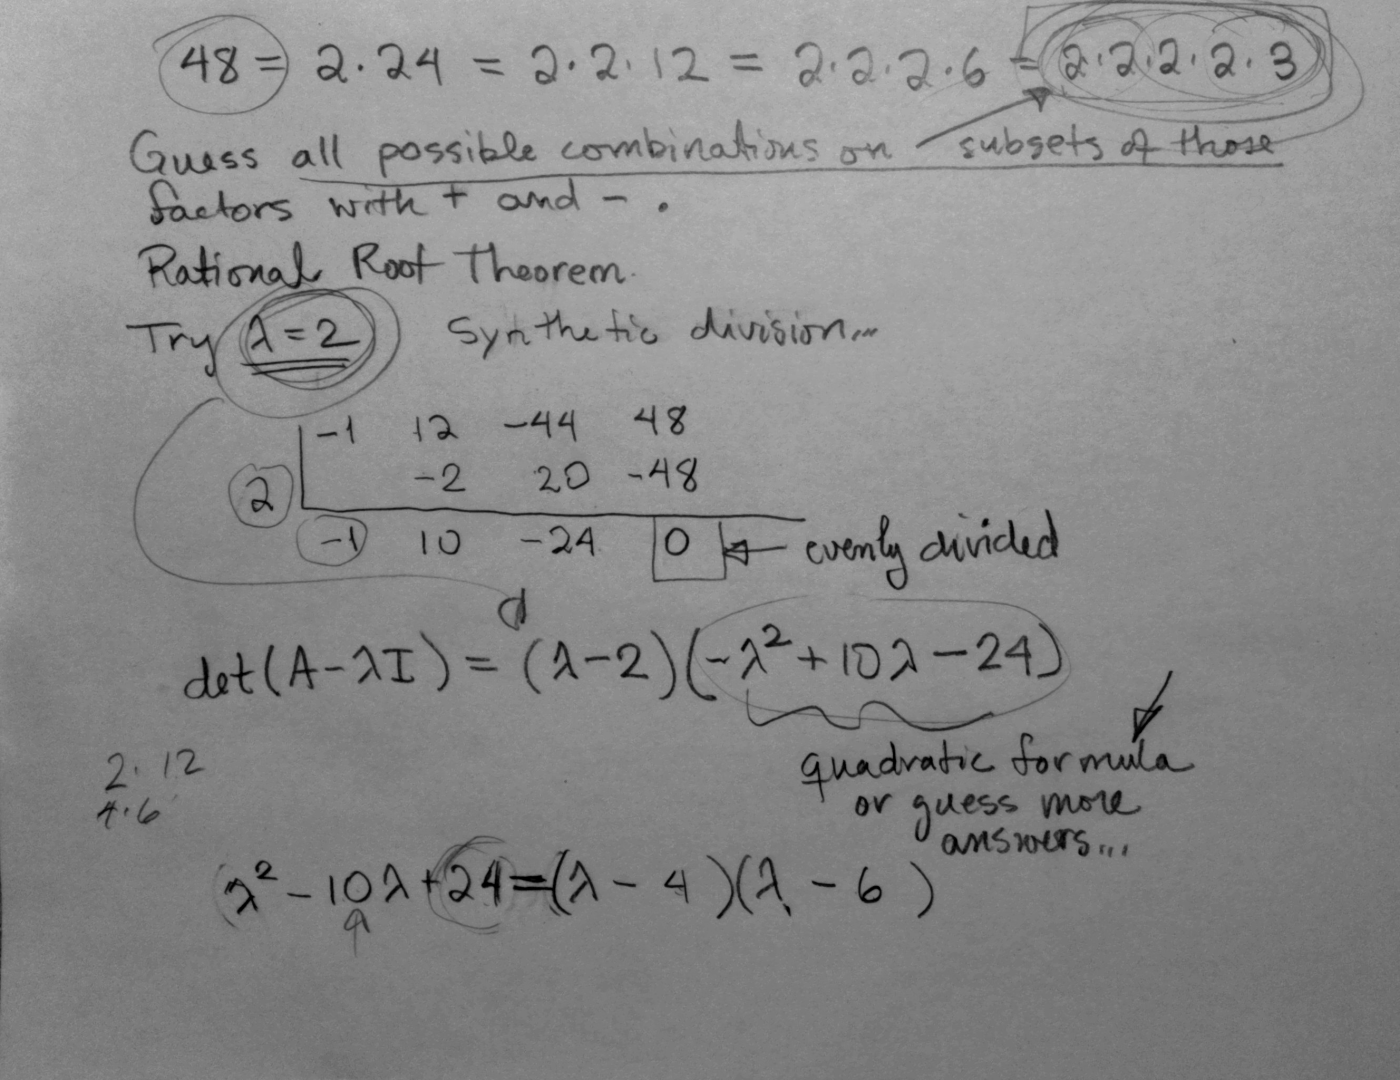 48 = 2·24 = 2·2·12 = 2·2·2·6 = 2·2·2·2·3
Guess all possible combinations on subsets of those
factors with + and - .
Rational Root Theorem.
Try λ=2 Synthetic division...
-1 12 -44 48
-2 20 -48
2
-1 10 -24 0 ← evenly divided
det(A-λI) = (λ-2)(-λ²+10λ-24)
2·12
4·6
quadratic formula
or guess more
answers...
λ² - 10λ + 24 = (λ - 4)(λ - 6)